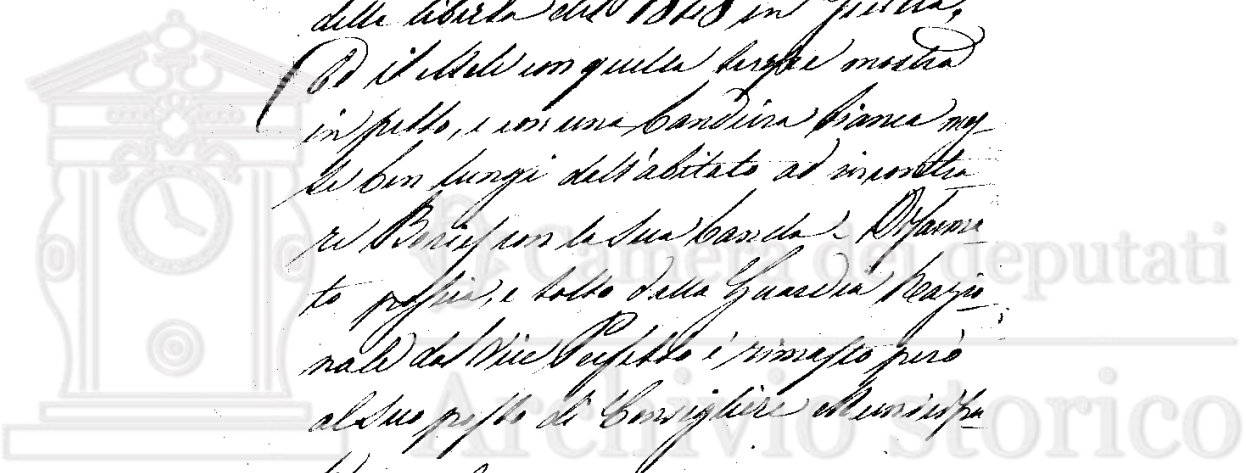 della libertà del 1848 in Sicilia,
Ed il Meli con quella sempre mostra
in petto, e con una bandiera bianca mos-
se ben lungi dell'abitato ad incontra-
re Borjes con la sua banda. Disarma-
to poscia, e tolto dalla Guardia Nazio-
nale dal Vice Prefetto è rimasto però
al suo posto di Consigliere Municipa-
Camera dei deputati
Archivio storico